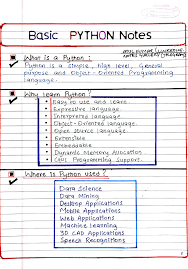 Basic PYTHON Notes
What is a Python :
Python is a simple, high level, General
purpose and Object-Oriented Programming
language.
Why learn Python?
Easy to use and learn
Expressive Language.
Interpreted Language.
Object-Oriented Language.
Open Source Language.
Extensible.
Embeddable
Dynamic Memory Allocation
GUI Programming Support.
Where is Python used?
Data Science
Data Mining
Desktop Applications
Mobile Applications
Web Applications
Machine Learning
3D CAD Applications
Speech Recognitions